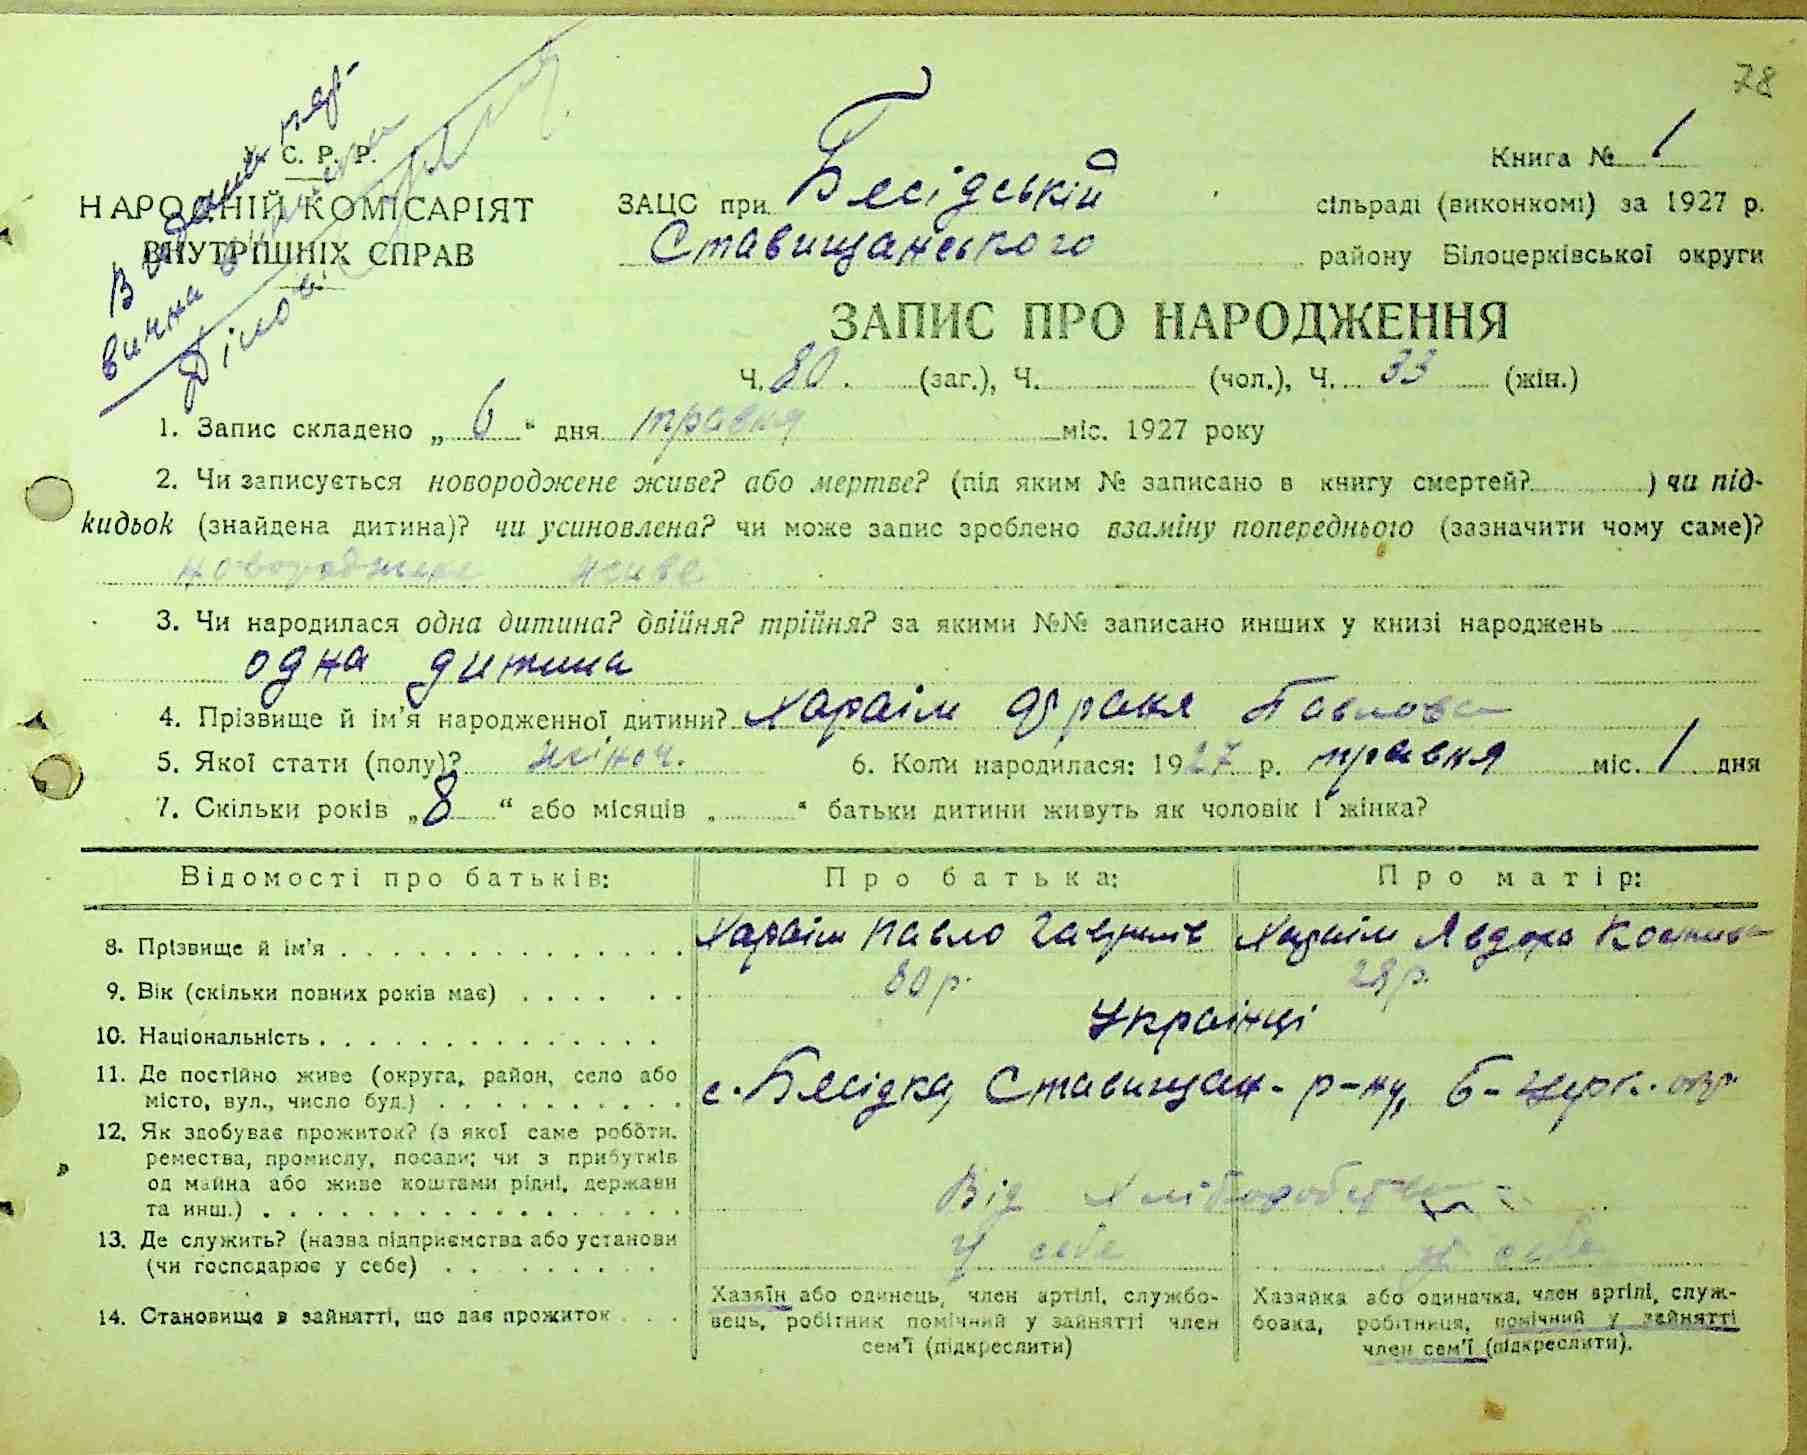 78
У. С. Р. Р.
НАРОДНІЙ КОМІСАРІЯТ
ВНУТРІШНІХ СПРАВ
Книга № 1
ЗАЦС при Бесідській сільраді (виконкомі) за 1927 р.
Ставищанського району Білоцерківської округи
ЗАПИС ПРО НАРОДЖЕННЯ
Ч. 80. (заг.), Ч. (чол.), Ч. 33 (жін.)
1. Запис складено „ 6 “ дня травня міс. 1927 року
2. Чи записується новороджене живе? або мертве? (під яким № записано в книгу смертей? ) чи під-
кидьок (знайдена дитина)? чи усиновлена? чи може запис зроблено взаміну попереднього (зазначити чому саме)?
новороджене живе
3. Чи народилася одна дитина? двійня? трійня? за якими №№ записано инших у книзі народжень
одна дитина
4. Прізвище й ім'я народженної дитини? Хараім Павлова
5. Якої стати (полу)? жіноч. 6. Коли народилася: 1927 р. травня міс. 1 дня
7. Скільки років „ 8 “ або місяців „ “ батьки дитини живуть як чоловік і жінка?
Відомості про батьків: Про батька: Про матір:
8. Прізвище й ім'я Хараім Павло Хараім Явдоха
9. Вік (скільки повних років має) 28 р.
10. Національність Украінці
11. Де постійно живе (округа, район, село або
місто, вул., число буд.) с. Бесідка, Ставищан- р-ну, Б-Церк. окр.
12. Як здобуває прожиток? (з якої саме роботи,
ремества, промислу, посади; чи з прибутків
од майна або живе коштами рідні, держави
та инш.) Від
13. Де служить? (назва підприємства або установи
(чи господарює у себе) У себе У себе
14. Становище в зайнятті, що дає прожиток
Хазяїн або одинець, член артілі, службо-
вець, робітник помічний у зайнятті член
сем'ї (підкреслити)
Хазяйка або одиначка, член артілі, служ-
бовка, робітниця, помічний у зайнятті
член сем'ї (підкреслити).